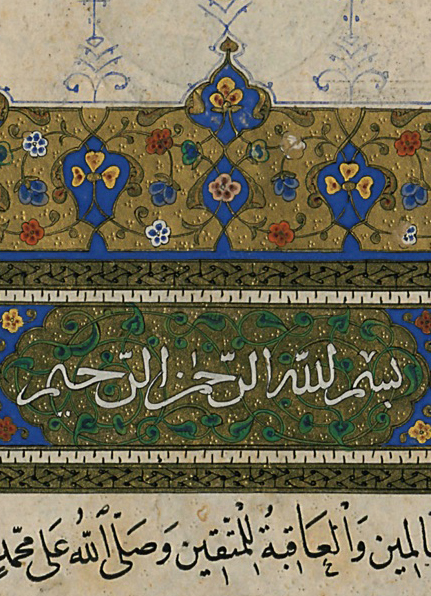 بسم الله الرحمن الرحيم
العالمين وَالْعَاقِبَةُ لِلْمُتَّقِينَ وَصَلَّى اللّٰهُ عَلَى مُحَمَّدٍ